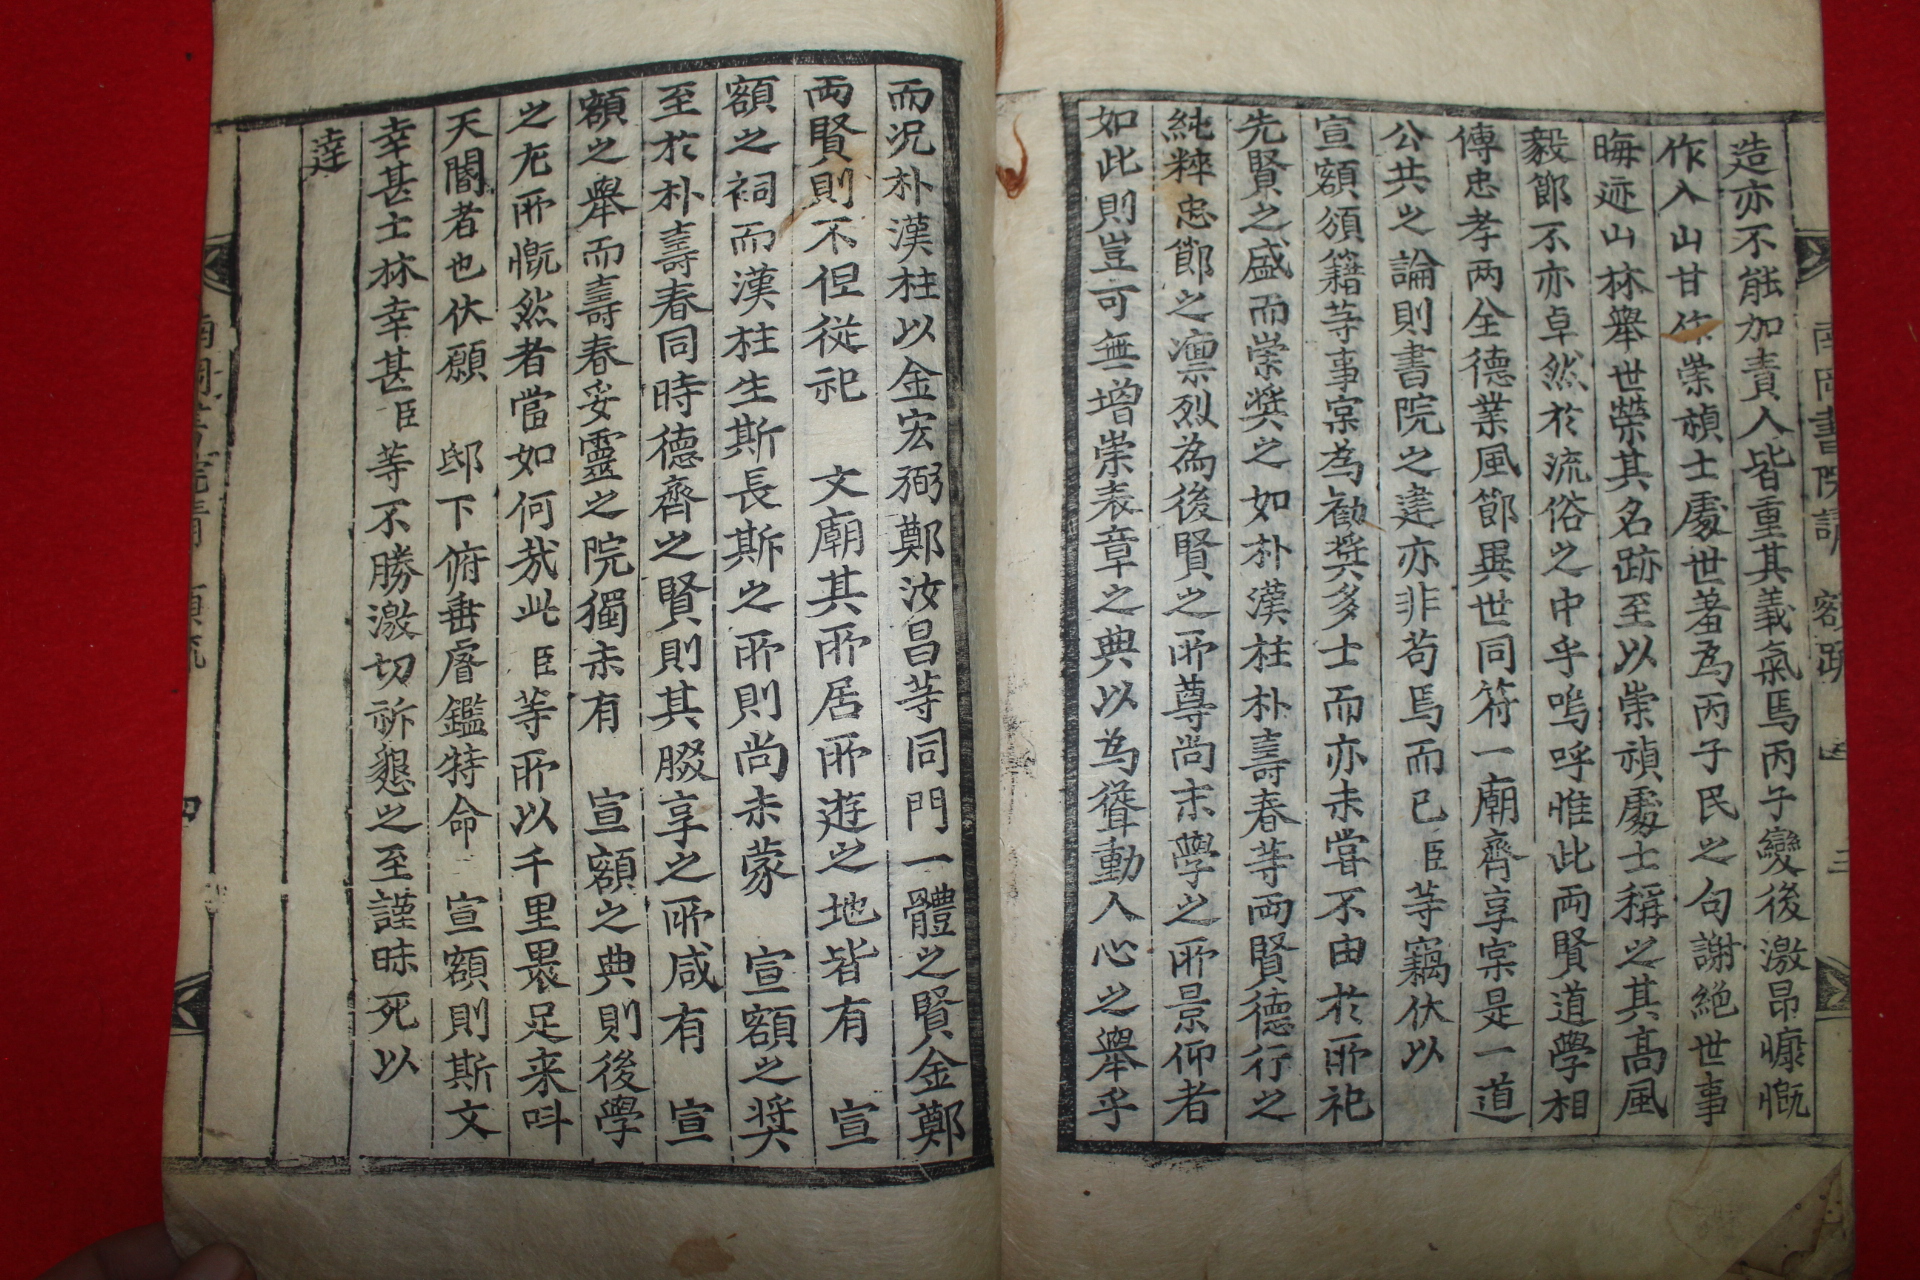 造亦不能加責人皆重其義氣焉丙子變後激昂慷慨
作入山甘作崇禎士處世羞為丙子民之句謝絶世事
晦迹山林舉世榮其名跡至以崇禎處士稱之其高風
毅節不亦卓然於流俗之中乎嗚呼惟此両賢道學相
傳忠孝两全德業風節異世同符一廟齊享宲是一道
公共之論則書院之建亦非苟焉而已臣等竊伏以
宣額頒籍等事宲為勸奬多士而亦未嘗不由於所祀
先賢之盛而崇奬之如朴漢柱朴壽春等両賢德行之
純粹忠節之凛烈為後賢之所尊尚末學之所景仰者
如此則豈可無增崇表章之典以為聳動人心之舉乎
而况朴漢柱以金宏弼鄭汝昌等同門一體之賢金鄭
両賢則不但従祀　文廟其所居所遊之地皆有　宣
額之祠而漢柱生斯長斯之所則尚未蒙　宣額之奬
至於朴壽春同時德齊之賢則其腏享之所咸有　宣
額之舉而壽春妥靈之院獨未有　宣額之典則後學
之尤所慨然者當如何㢤此臣等所以千里裹足来呌
天閽者也伏願　邸下俯垂睿鑑特命　宣額則斯文
幸甚士林幸甚臣等不勝激切祈懇之至謹昧死以
達
南岡書院請額疏　三
四